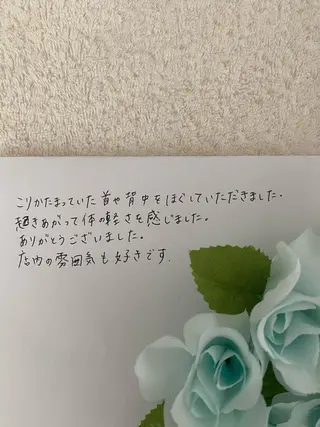 こりかたまっていた首や背中をほぐしていただきました。
起きあがって体の軽さを感じました。
ありがとうございました。
店内の雰囲気も好きです。